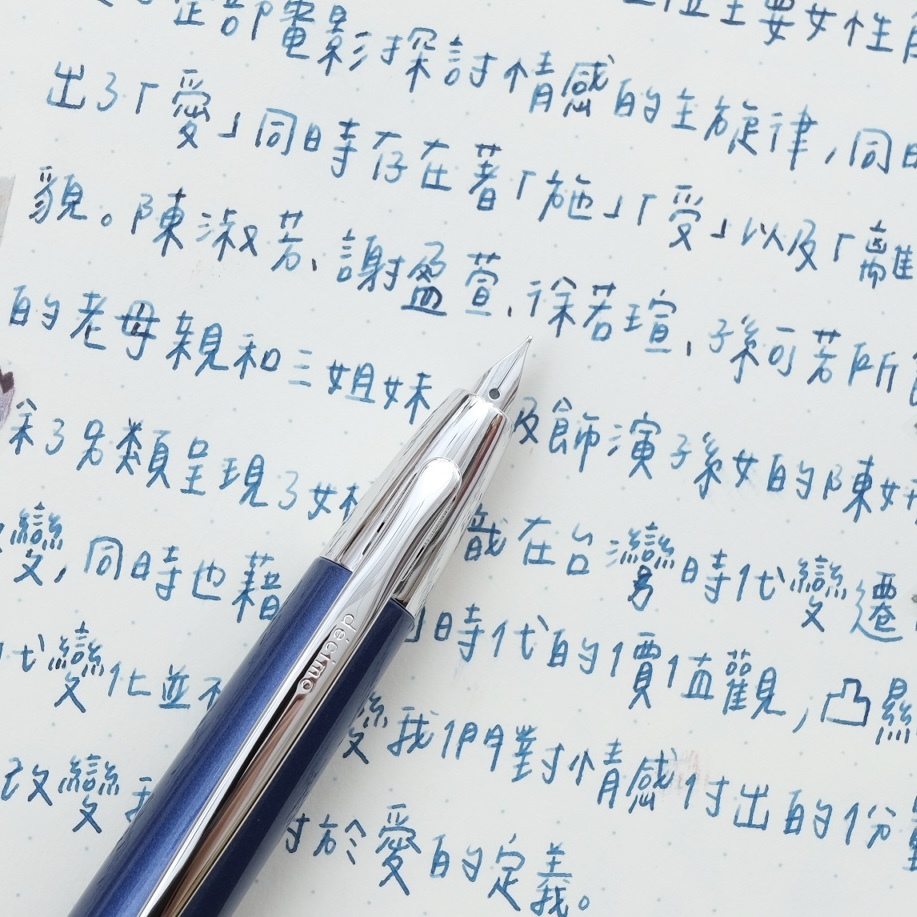 整部電影探討情感的主旋律，同
主要女性
出了「愛」同時存在著「施」「受」以及「離
貌。陳淑芳、謝盈萱、徐若瑄、孫可芳所
的老母親和三姐妹 及飾演孫女的陳妍
了另類呈現了 在台灣時代變遷
變，同時也藉 時代的價值觀，凸顯
代變化並不 我們對情感付出的份量
改變我 對於愛的定義。
décimo